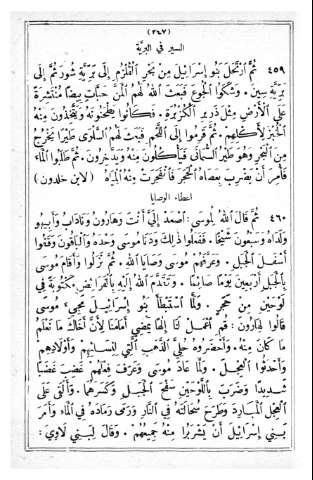 (٢٤٧)
السير في البرّيّة
٤٥٩ ثُمَّ ٱرْتَحَلَ بَنُو إِسْرَائِيلَ مِنْ بَحْرِ ٱلْقُلْزُمِ إِلَى بَرِّيَّةِ شُورَ ثُمَّ إِلَى
بَرِّيَّةِ سِينَ. وَشَكَوُا ٱلْجُوعَ فَبَعَثَ ٱللهُ لَهُمُ ٱلْمَنَّ حَبَّاتٍ بِيضًا مُنْتَشِرَةً
عَلَى ٱلْأَرْضِ مِثْلَ ذَرِيرِ ٱلْكُزْبُرَةِ. فَكَانُوا يَطْحَنُونَهُ وَيَتَّخِذُونَ مِنْهُ
ٱلْخُبْزَ لِأَكْلِهِمْ. ثُمَّ قَرِمُوا إِلَى ٱللَّحْمِ فَبَعَثَ لَهُمُ ٱلسَّلْوَى طَيْرًا يَخْرُجُ
مِنَ ٱلْبَحْرِ وَهُوَ طَيْرُ ٱلسُّمَانَى فَيَأْكُلُونَ مِنْهُ وَيَدَّخِرُونَ. ثُمَّ طَلَبُوا ٱلْمَاءَ
فَأُمِرَ أَنْ يَضْرِبَ بِعَصَاهُ ٱلْحَجَرَ فَٱنْفَجَرَتْ مِنْهُ ٱلْمِيَاهُ (لابن خلدون)
اعطاء الوصايا
٤٦٠ ثُمَّ قَالَ ٱللهُ لِمُوسَى: ٱصْعَدْ إِلَيَّ أَنْتَ وَهَارُونُ وَنَادَابُ وَأَبِيهُو
وَلَدَاهُ وَسَبْعُونَ شَيْخًا. فَفَعَلُوا ذٰلِكَ وَدَنَا مُوسَى وَحْدَهُ وَٱلْبَاقُونَ وَقَفُوا
أَسْفَلَ ٱلْجَبَلِ. وَعَرَّفَهُمْ مُوسَى وَصَايَا ٱللهِ. ثُمَّ نَزَلُوا وَأَقَامَ مُوسَى
بِٱلْجَبَلِ أَرْبَعِينَ يَوْمًا صَائِمًا. وَتَقَدَّمَ ٱللهُ إِلَيْهِ بِٱلْفَرَائِضِ مَكْتُوبَةً فِي
لَوْحَيْنِ مِنْ حَجَرٍ. وَلَمَّا ٱسْتَبْطَأَ بَنُو إِسْرَائِيلَ مَجِيءَ مُوسَى
قَالُوا لِهَارُونَ: قُمْ ٱعْمَلْ لَنَا إِلٰهًا يَمْضِي أَمَامَنَا لِأَنَّ أَخَاكَ مَا نَعْلَمُ
مَا كَانَ مِنْهُ. وَأَحْضَرُوهُ حُلِيَّ ٱلذَّهَبِ ٱلَّتِي لِنِسَائِهِمْ وَأَوْلَادِهِمْ
وَأَخَذُوا ٱلْعِجْلَ. وَلَمَّا عَادَ مُوسَى وَعَرَفَ فِعْلَهُمْ غَضِبَ غَضَبًا
شَدِيدًا وَضَرَبَ بِٱللَّوْحَيْنِ سَفْحَ ٱلْجَبَلِ وَكَسَرَهُمَا. وَأَلْقَى عَلَى
ٱلْعِجْلِ ٱلْمَبَارِدَ وَطَرَحَ سُحَالَتَهُ فِي ٱلنَّارِ وَرَمَى رَمَادَهُ فِي ٱلْمَاءِ وَأَمَرَ
بَنِي إِسْرَائِيلَ أَنْ يَشْرَبُوا مِنْهُ جَمِيعُهُمْ. وَقَالَ لِبَنِي لَاوِيَ: